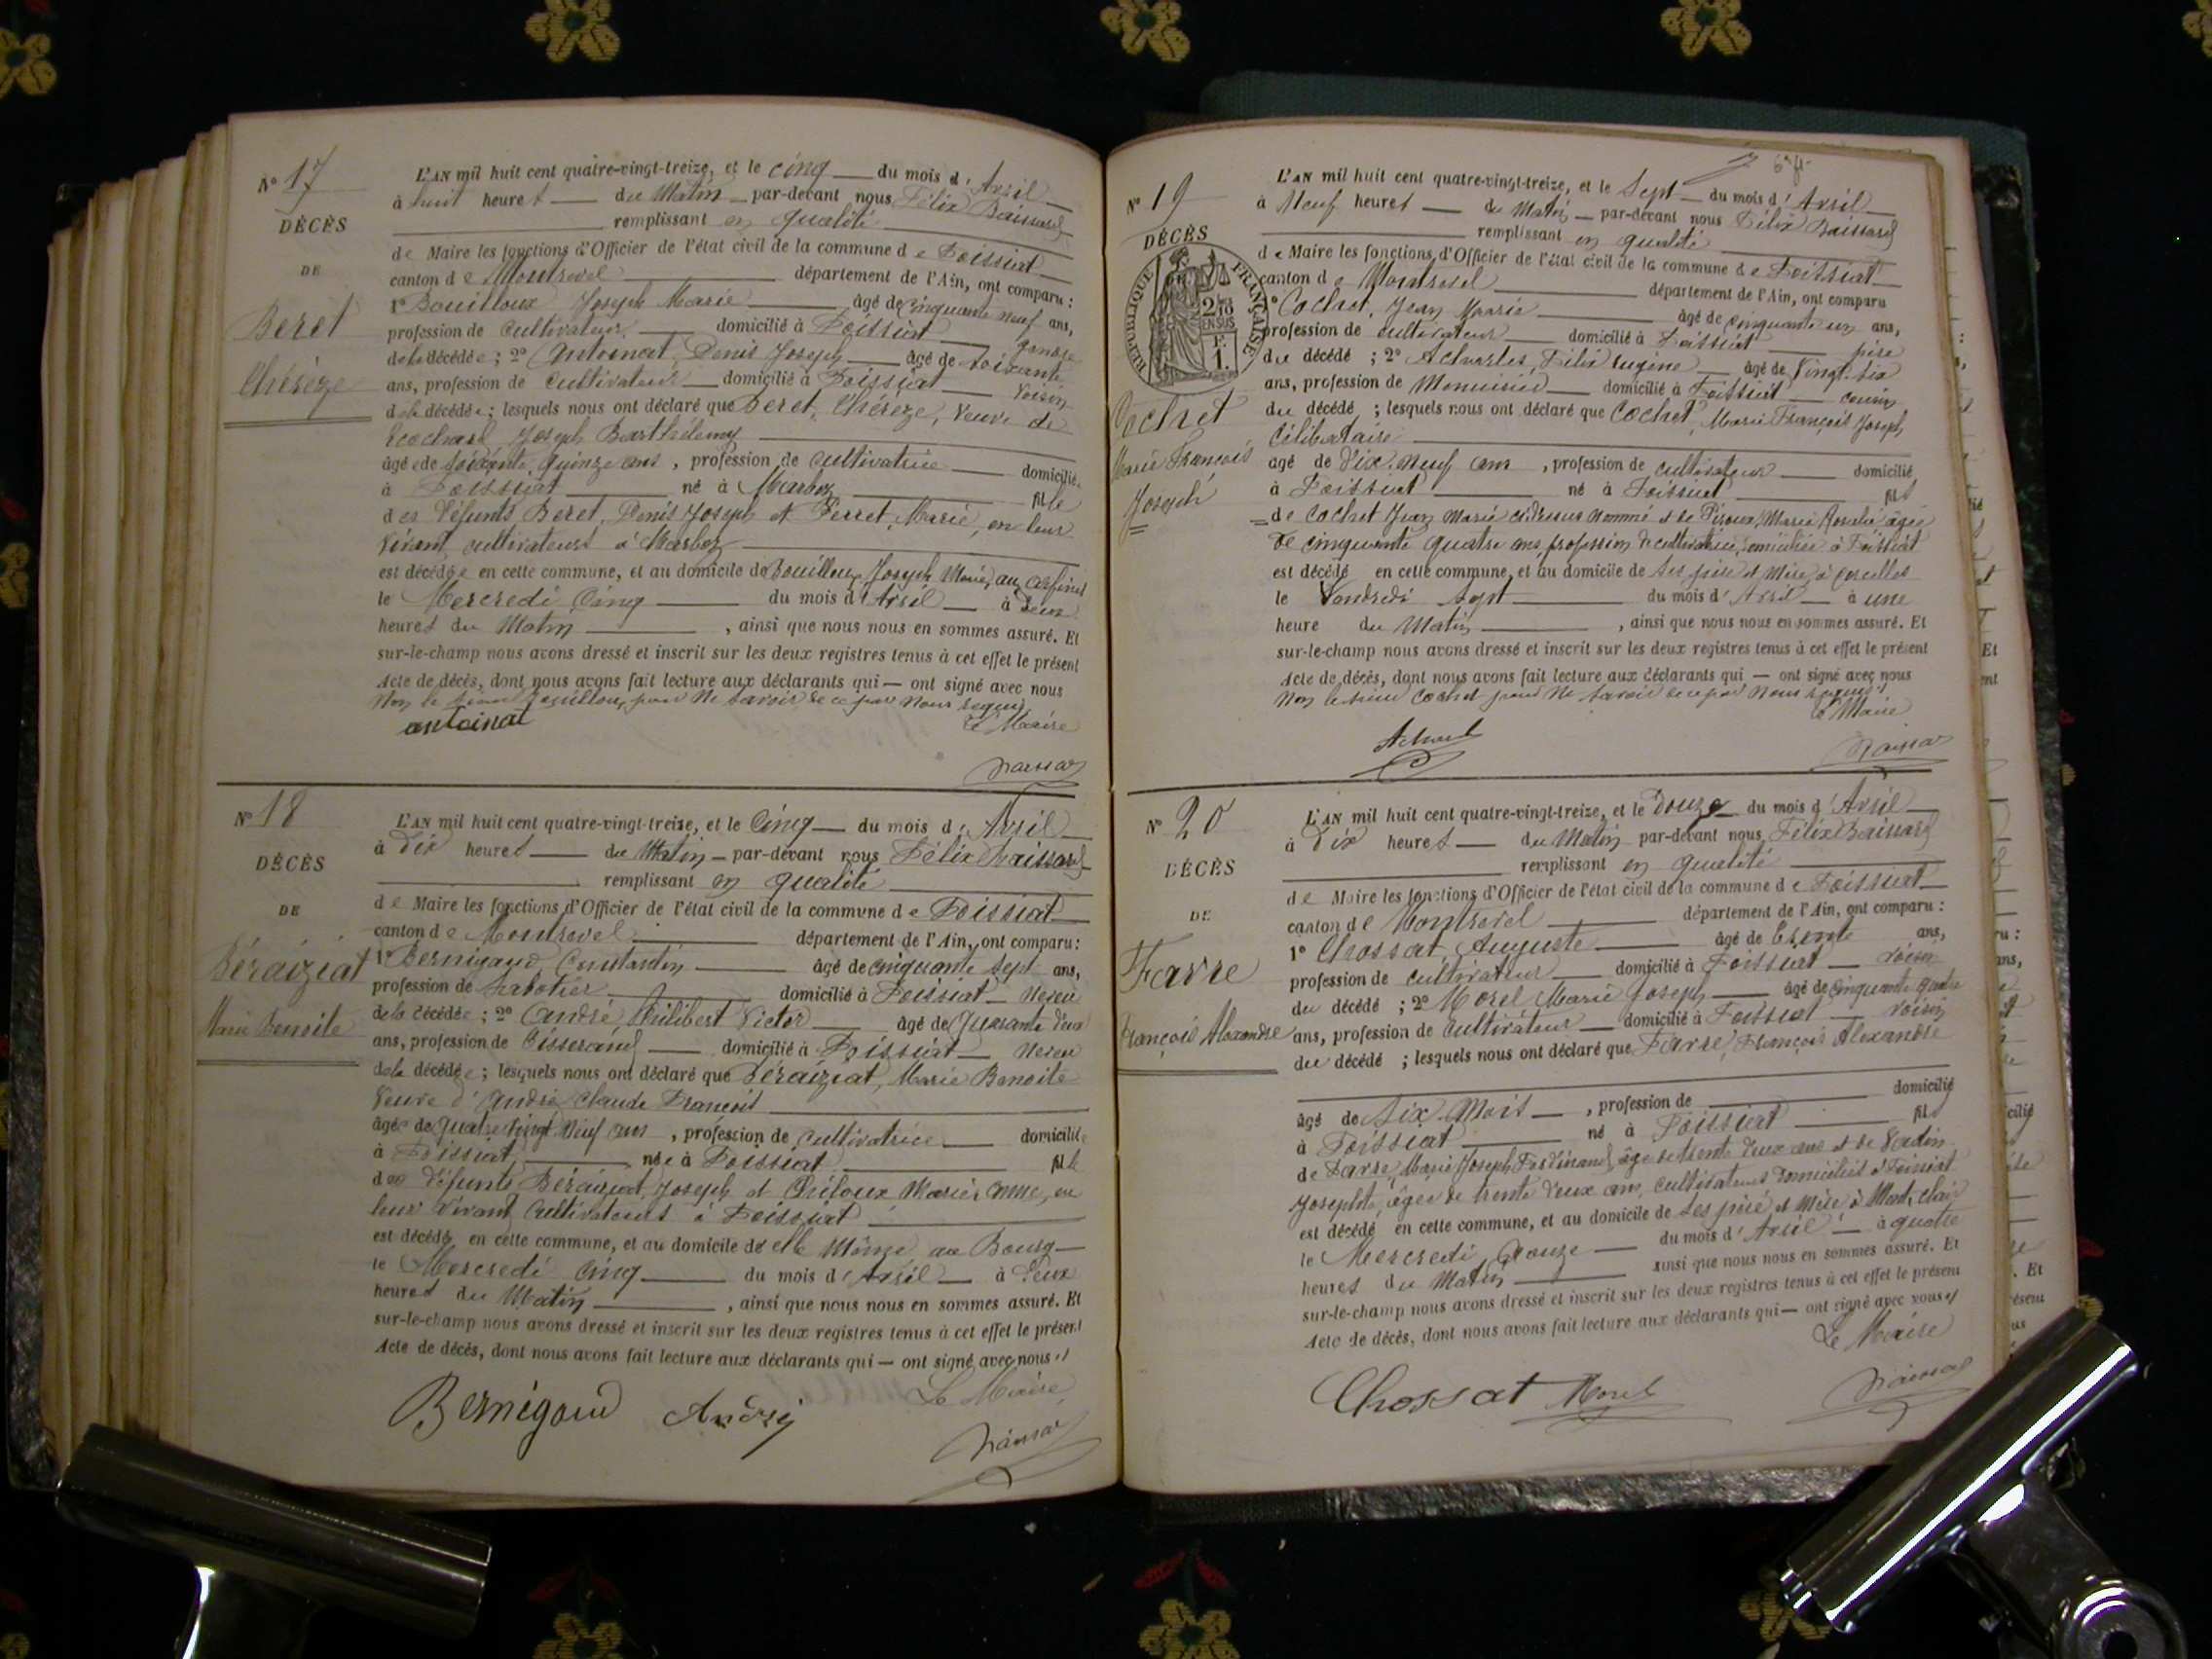 N° 17
DÉCÈS
DE
Beret
Thérèze
L'AN mil huit cent quatre-vingt-treize, et le cinq du mois d'Avril
à huit heures du Matin par-devant nous Félix Baissard
remplissant en qualité
de Maire les fonctions d'Officier de l'état civil de la commune de Foissiat
canton de Montrevel département de l'Ain, ont comparu :
1° Bouilloux Joseph Marie âgé de cinquante neuf ans,
profession de cultivateur domicilié à Foissiat gendre
de la décédée ; 2° Antoinat, Denis Joseph âgé de soixante
ans, profession de cultivateur domicilié à Foissiat voisin
de la décédée ; lesquels nous ont déclaré que Beret, Thérèze, Veuve de
Ecochard Joseph Barthélemy
âgée de soixante quinze ans, profession de cultivatrice domiciliée
à Foissiat né à Marboz fille
des défunts Beret, Denis Joseph et Perret, Marie, en leur
vivant cultivateurs à Marboz
est décédée en cette commune, et au domicile de Bouilloux Joseph Marie, au
le Mercredi Cinq du mois d'Avril à deux
heures du Matin, ainsi que nous nous en sommes assuré. Et
sur-le-champ nous avons dressé et inscrit sur les deux registres tenus à cet effet le présent
Acte de décès, dont nous avons fait lecture aux déclarants qui — ont signé avec nous
Non le sieur Bouilloux pour ne savoir de ce par nous requis
antoinat
Le Maire
N° 18
DÉCÈS
DE
Béraiziat
Marie Benoite
L'AN mil huit cent quatre-vingt-treize, et le Cinq du mois d'Avril
à Dix heures du Matin par-devant nous Félix Baissard
remplissant en qualité
de Maire les fonctions d'Officier de l'état civil de la commune de Foissiat
canton de Montrevel département de l'Ain, ont comparu :
1° Bernigaud Constantin âgé de cinquante sept ans,
profession de sabotier domicilié à Foissiat Neveu
de la décédée ; 2° André, Philibert Victor âgé de Quarante deux
ans, profession de Tisserand domicilié à Foissiat Neveu
de la décédée ; lesquels nous ont déclaré que Béraiziat, Marie Benoite
Veuve d'André Claude François
âgée de quatre vingt neuf ans, profession de cultivatrice domiciliée
à Foissiat née à Foissiat fille
des défunts Béraiziat, Joseph et Marie Anne, en
leur vivant Cultivateurs à Foissiat
est décédé en cette commune, et au domicile de elle Même au Bourg
le Mercredi Cinq du mois d'Avril à Deux
heures du Matin, ainsi que nous nous en sommes assuré. Et
sur-le-champ nous avons dressé et inscrit sur les deux registres tenus à cet effet le présent
Acte de décès, dont nous avons fait lecture aux déclarants qui — ont signé avec nous
Le Maire
Bernigaud André
N° 19
DÉCÈS
RÉPUBLIQUE FRANÇAISE
2/10 EN SUS
Cochet
Marie François
Joseph
L'AN mil huit cent quatre-vingt-treize, et le Sept du mois d'Avril
à Neuf heures du Matin par-devant nous Félix Baissard
remplissant en qualité
de Maire les fonctions d'Officier de l'état civil de la commune de Foissiat
canton de Montrevel département de l'Ain, ont comparu
1° Cochet, Jean Marie âgé de cinquante un ans,
profession de cultivateur domicilié à Foissiat père
du décédé ; 2° Félix Eugène âgé de Vingt six
ans, profession de Menuisier domicilié à Foissiat cousin
du décédé ; lesquels nous ont déclaré que Cochet, Marie François Joseph
Célibataire
âgé de Dix neuf ans, profession de cultivateur domicilié
à Foissiat né à Foissiat fils
de Cochet Jean Marie ci-dessus nommé et de Piroux, Marie Rosalie âgée
de cinquante quatre ans, profession de cultivatrice domiciliée à Foissiat
est décédé en cette commune, et au domicile de ses père et Mère, à
le Vendredi sept du mois d'Avril à une
heure du Matin, ainsi que nous nous en sommes assuré. Et
sur-le-champ nous avons dressé et inscrit sur les deux registres tenus à cet effet le présent
Acte de décès, dont nous avons fait lecture aux déclarants qui — ont signé avec nous
Non le sieur Cochet pour ne savoir de ce par nous requis
Le Maire
N° 20
DÉCÈS
DE
Favre
François Alexandre
L'AN mil huit cent quatre-vingt-treize, et le Douze du mois d'Avril
à Dix heures du Matin par-devant nous Félix Baissard
remplissant en qualité
de Maire les fonctions d'Officier de l'état civil de la commune de Foissiat
canton de Montrevel département de l'Ain, ont comparu :
1° Chossat Auguste âgé de trente ans,
profession de cultivateur domicilié à Foissiat voisin
du décédé ; 2° Morel Marie Joseph âgé de cinquante quatre
ans, profession de Cultivateur domicilié à Foissiat voisin
du décédé ; lesquels nous ont déclaré que Favre, François Alexandre
âgé de Six Mois, profession de domicilié
à Foissiat né à Foissiat fils
de Favre, Marie Joseph Ferdinand, âgé de trente deux ans et de
Josephte, âgée de trente deux ans, cultivateurs domiciliés à Foissiat
est décédé en cette commune, et au domicile de ses père et Mère, à
le Mercredi Douze du mois d'Avril à quatre
heures du Matin ainsi que nous nous en sommes assuré. Et
sur-le-champ nous avons dressé et inscrit sur les deux registres tenus à cet effet le présent
Acte de décès, dont nous avons fait lecture aux déclarants qui — ont signé avec nous
Le Maire
Chossat Morel